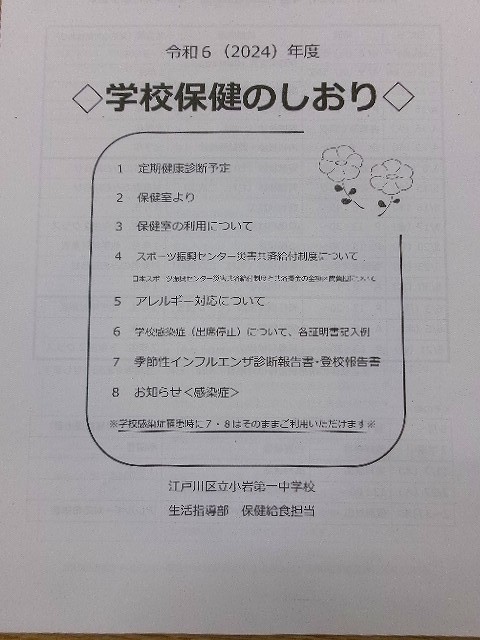 令和6（2024）年度
◇学校保健のしおり◇
1 定期健康診断予定
2 保健室より
3 保健室の利用について
4 スポーツ振興センター災害共済給付制度について
5 アレルギー対応について
6 学校感染症（出席停止）について、各証明書記入例
7 季節性インフルエンザ診断報告書・登校報告書
8 お知らせ＜感染症＞
※学校感染症罹患時に7・8はそのままご利用いただけます※
江戸川区立小岩第一中学校
生活指導部 保健給食担当